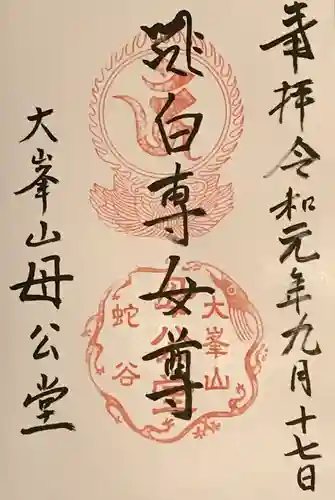 奉拝 令和元年九月十七日
白専女尊
大峯山母公堂
大峯山
母公堂
蛇谷